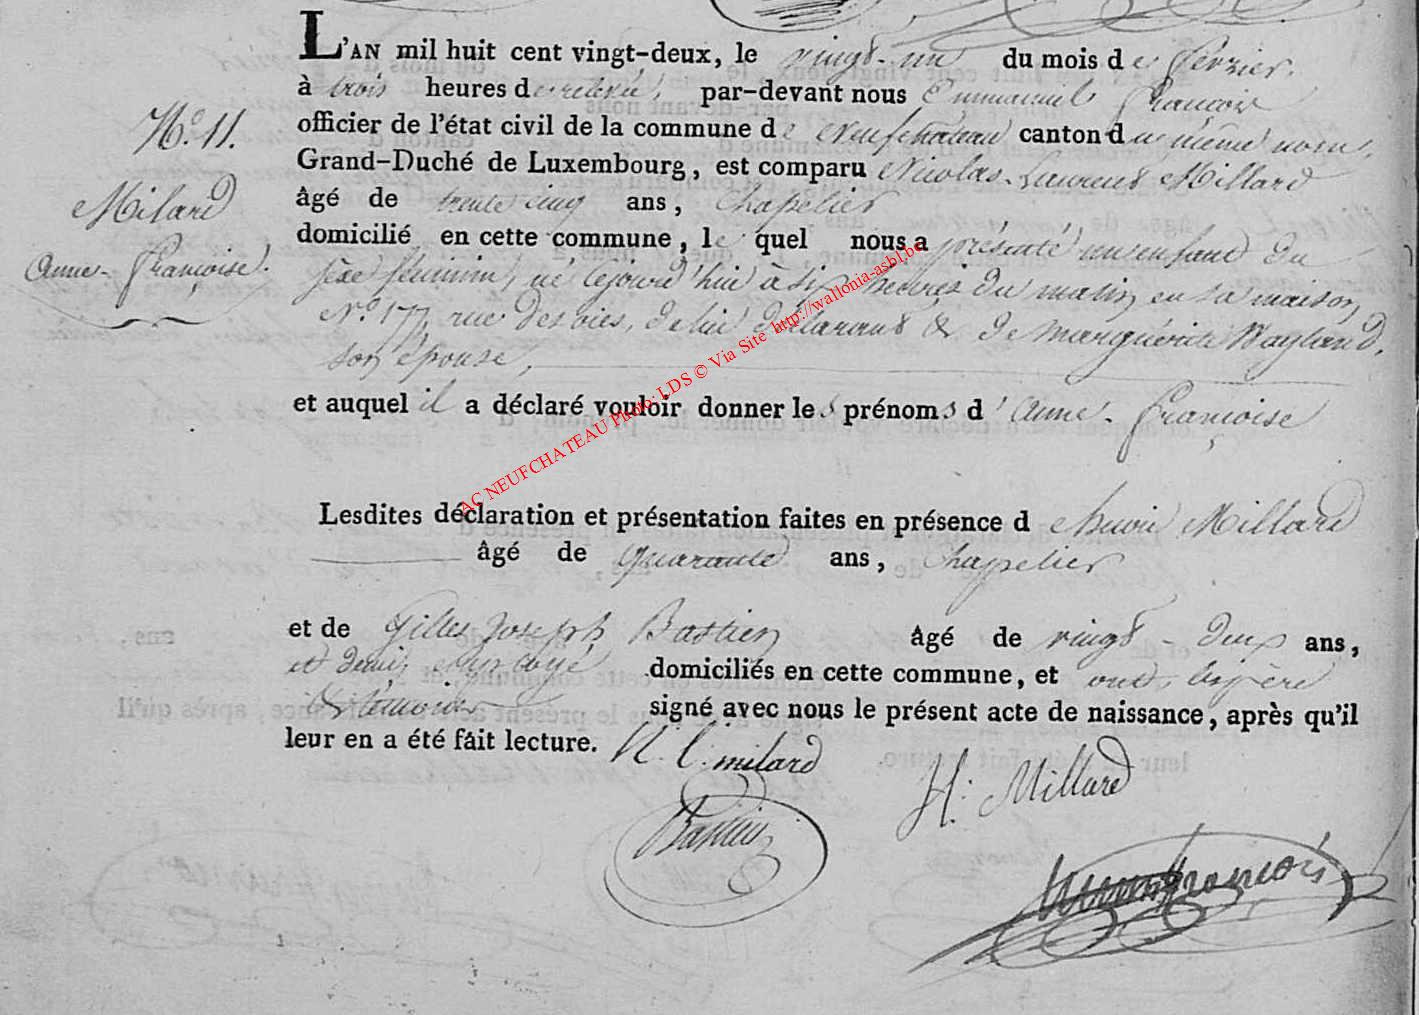 L'AN mil huit cent vingt-deux, le vingt-un du mois de février,
à trois heures de relevée, par-devant nous Emmanuel François
officier de l'état civil de la commune de Neufchateau canton du même nom,
Grand-Duché de Luxembourg, est comparu Nicolas-Laurent Millard
âgé de trente cinq ans, Chapelier
domicilié en cette commune, lequel nous a présenté un enfant du
sexe féminin, né cejourd'hui à six heures du matin en sa maison,
N.° 177, rue des oies, de lui déclarant & de Marguérite
son épouse,
et auquel il a déclaré vouloir donner les prénoms d'Anne-Françoise
Lesdites déclaration et présentation faites en présence d'henri Millard
âgé de quarante ans, Chapelier
et de Gilles Joseph Bastien âgé de vingt-deux ans,
et demi, employé domiciliés en cette commune, et ont le père
& témoins signé avec nous le présent acte de naissance, après qu'il
leur en a été fait lecture.
N. L. milard
H. Millard
Bastien
françois
N.° 11.
Milard
Anne-Françoise.
AC NEUFCHATEAU Photo: LDS © Via Site http://wallonia-asbl.be